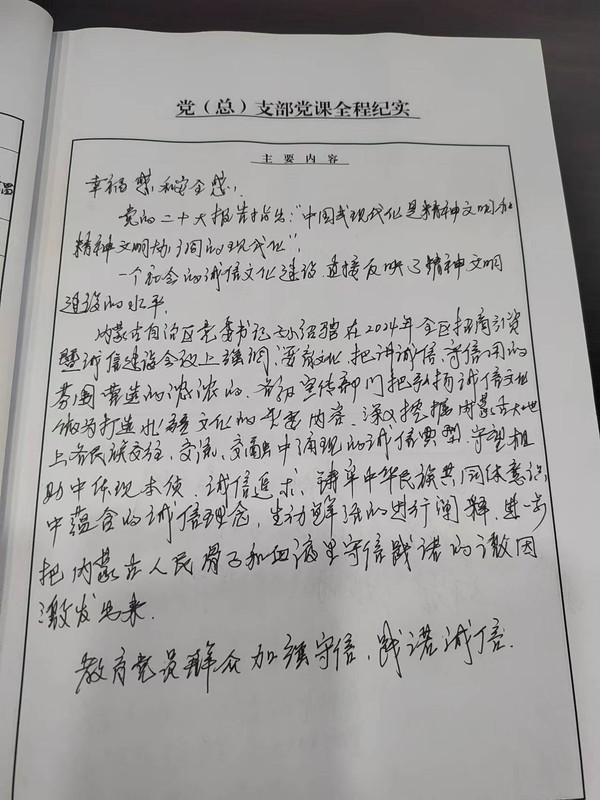 党（总）支部党课全程纪实
主要内容
幸福感和安全感，
党的二十大报告指出：“中国式现代化是精神文明和
精神文明协调的现代化”，
一个社会的诚信文化建设，直接反映了精神文明
建设的水平，
内蒙古自治区党委书记孙绍骋在2024年全区招商引资
暨诚信建设会议上强调，要有文化，把讲诚信、守信用的
氛围营造的浓浓的，各级宣传部门把弘扬诚信文化
做为打造北疆文化的重要内容，深入挖掘内蒙古大地
上各民族交往、交流、交融中涌现的诚信典型，守望相
助中体现本质、诚信追求，铸牢中华民族共同体意识
中蕴含的诚信理念，生动鲜活的进行阐释，进一步
把内蒙古人民骨子和血液里守信践诺的诚因
激发出来，
教育党员群众加强守信、践诺诚信．